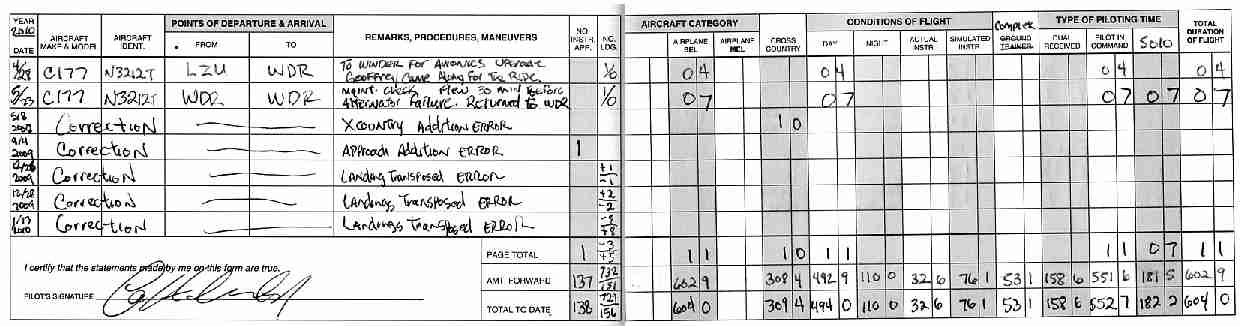 YEAR 2010 POINTS OF DEPARTURE & ARRIVAL AIRCRAFT CATEGORY CONDITIONS OF FLIGHT TYPE OF PILOTING TIME
DATE AIRCRAFT MAKE & MODEL AIRCRAFT IDENT. FROM TO REMARKS, PROCEDURES, MANEUVERS NO. INSTR. APP. NO. LDG. AIRPLANE SEL AIRPLANE MEL CROSS COUNTRY DAY NIGHT ACTUAL INSTR SIMULATED INSTR GROUND TRAINER DUAL RECEIVED PILOT IN COMMAND Solo TOTAL DURATION OF FLIGHT
4/28 C177 N3212T LZU WDR TO WINDER FOR AVIONICS UPGRADE 1/0 04 04 04 04
Geoffrey Came Along For The Ride
5/23 C177 N3212T WDR WDR MAINT. CHECK Flew 30 MIN BEFORE 1/0 07 07 07 07 07
Alternator Failure. Returned to WDR
5/8 Correction X Country Addition ERROR 1 0
9/11 2009 Correction Approach Addition ERROR 1
2009 Correction Landing Transposed ERROR +1/-1
12/28 2009 Correction Landings Transposed ERROR +2/-2
1/23 2010 Correction Landings Transposed ERROR
PAGE TOTAL 1 -3/+5 1 1 1 0 1 1 1 1 07 1 1
I certify that the statements made by me on this form are true.
AMT. FORWARD 137 602 9 308 4 492 9 110 0 32 6 76 1 53 1 158 6 551 6 181 5 602 9
PILOT'S SIGNATURE
TOTAL TO DATE 138 604 0 309 4 494 0 110 0 32 6 76 1 53 1 158 6 552 7 182 2 604 0